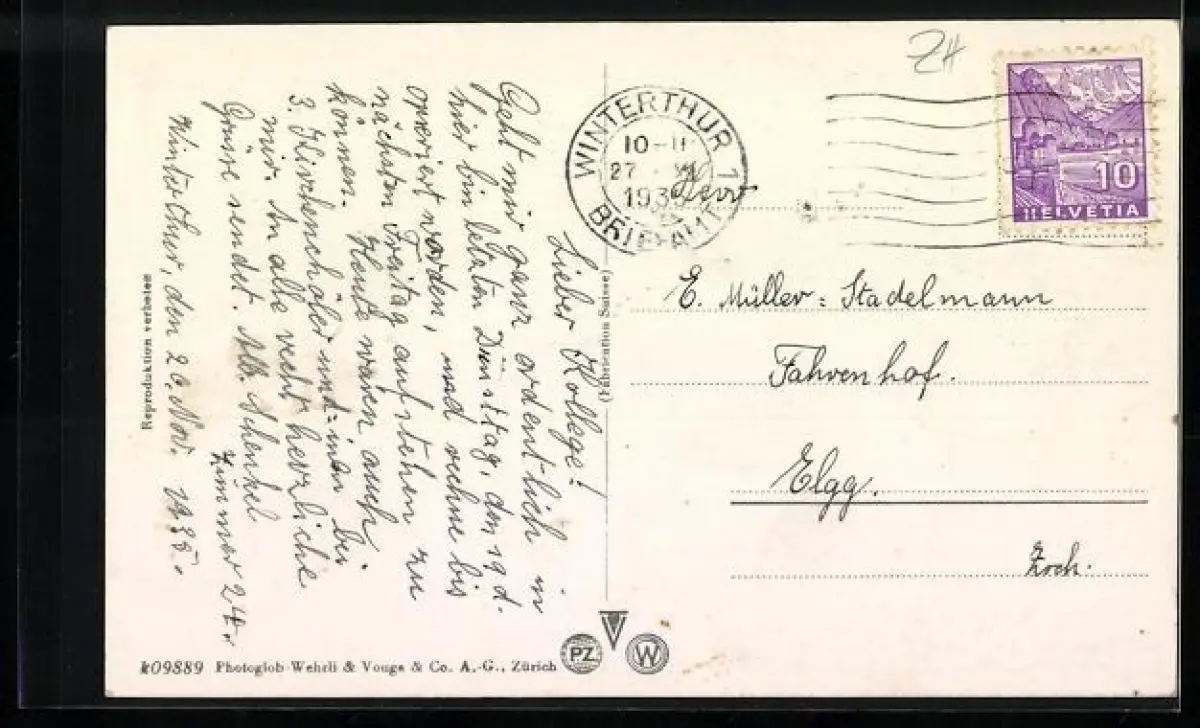 Lieber Kollege!
Geht mir ganz ordentlich in
hier bin letzten Dienstag, den 19 d.
operiert worden, und rechne bis
nächsten Freitag aufstehen zu
können. Heute waren auch
3. Kirchenchöler und bei
mir. An alle recht herzliche
Grüsse sendet. Alb. Schenkel
Zimmer 24.
Winterthur, den 26. Nov. 1935.
Reproduktion verboten
(Fabrication Suisse)
k09889 Photoglob-Wehrli & Vouga & Co. A.-G., Zürich
PZ
W
ZH
WINTERTHUR 1
10-11
27. XI
1935
BRIEFAMT
10
HELVETIA
Herr
E. Müller=Stadelmann
Fahrenhof.
Elgg.
Zrch.